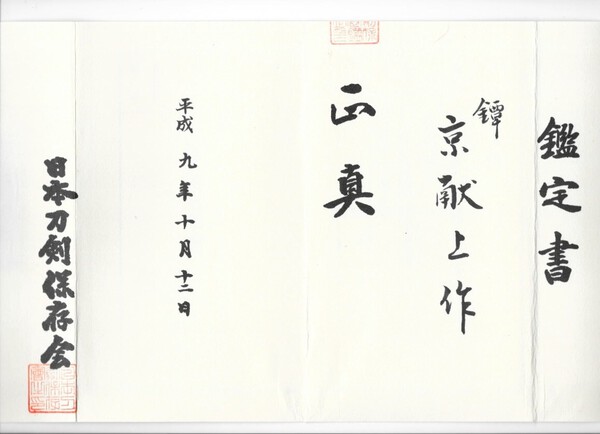 鑑定書
鐔
京献上作
正真
平成九年十月十二日
日本刀剣保存会